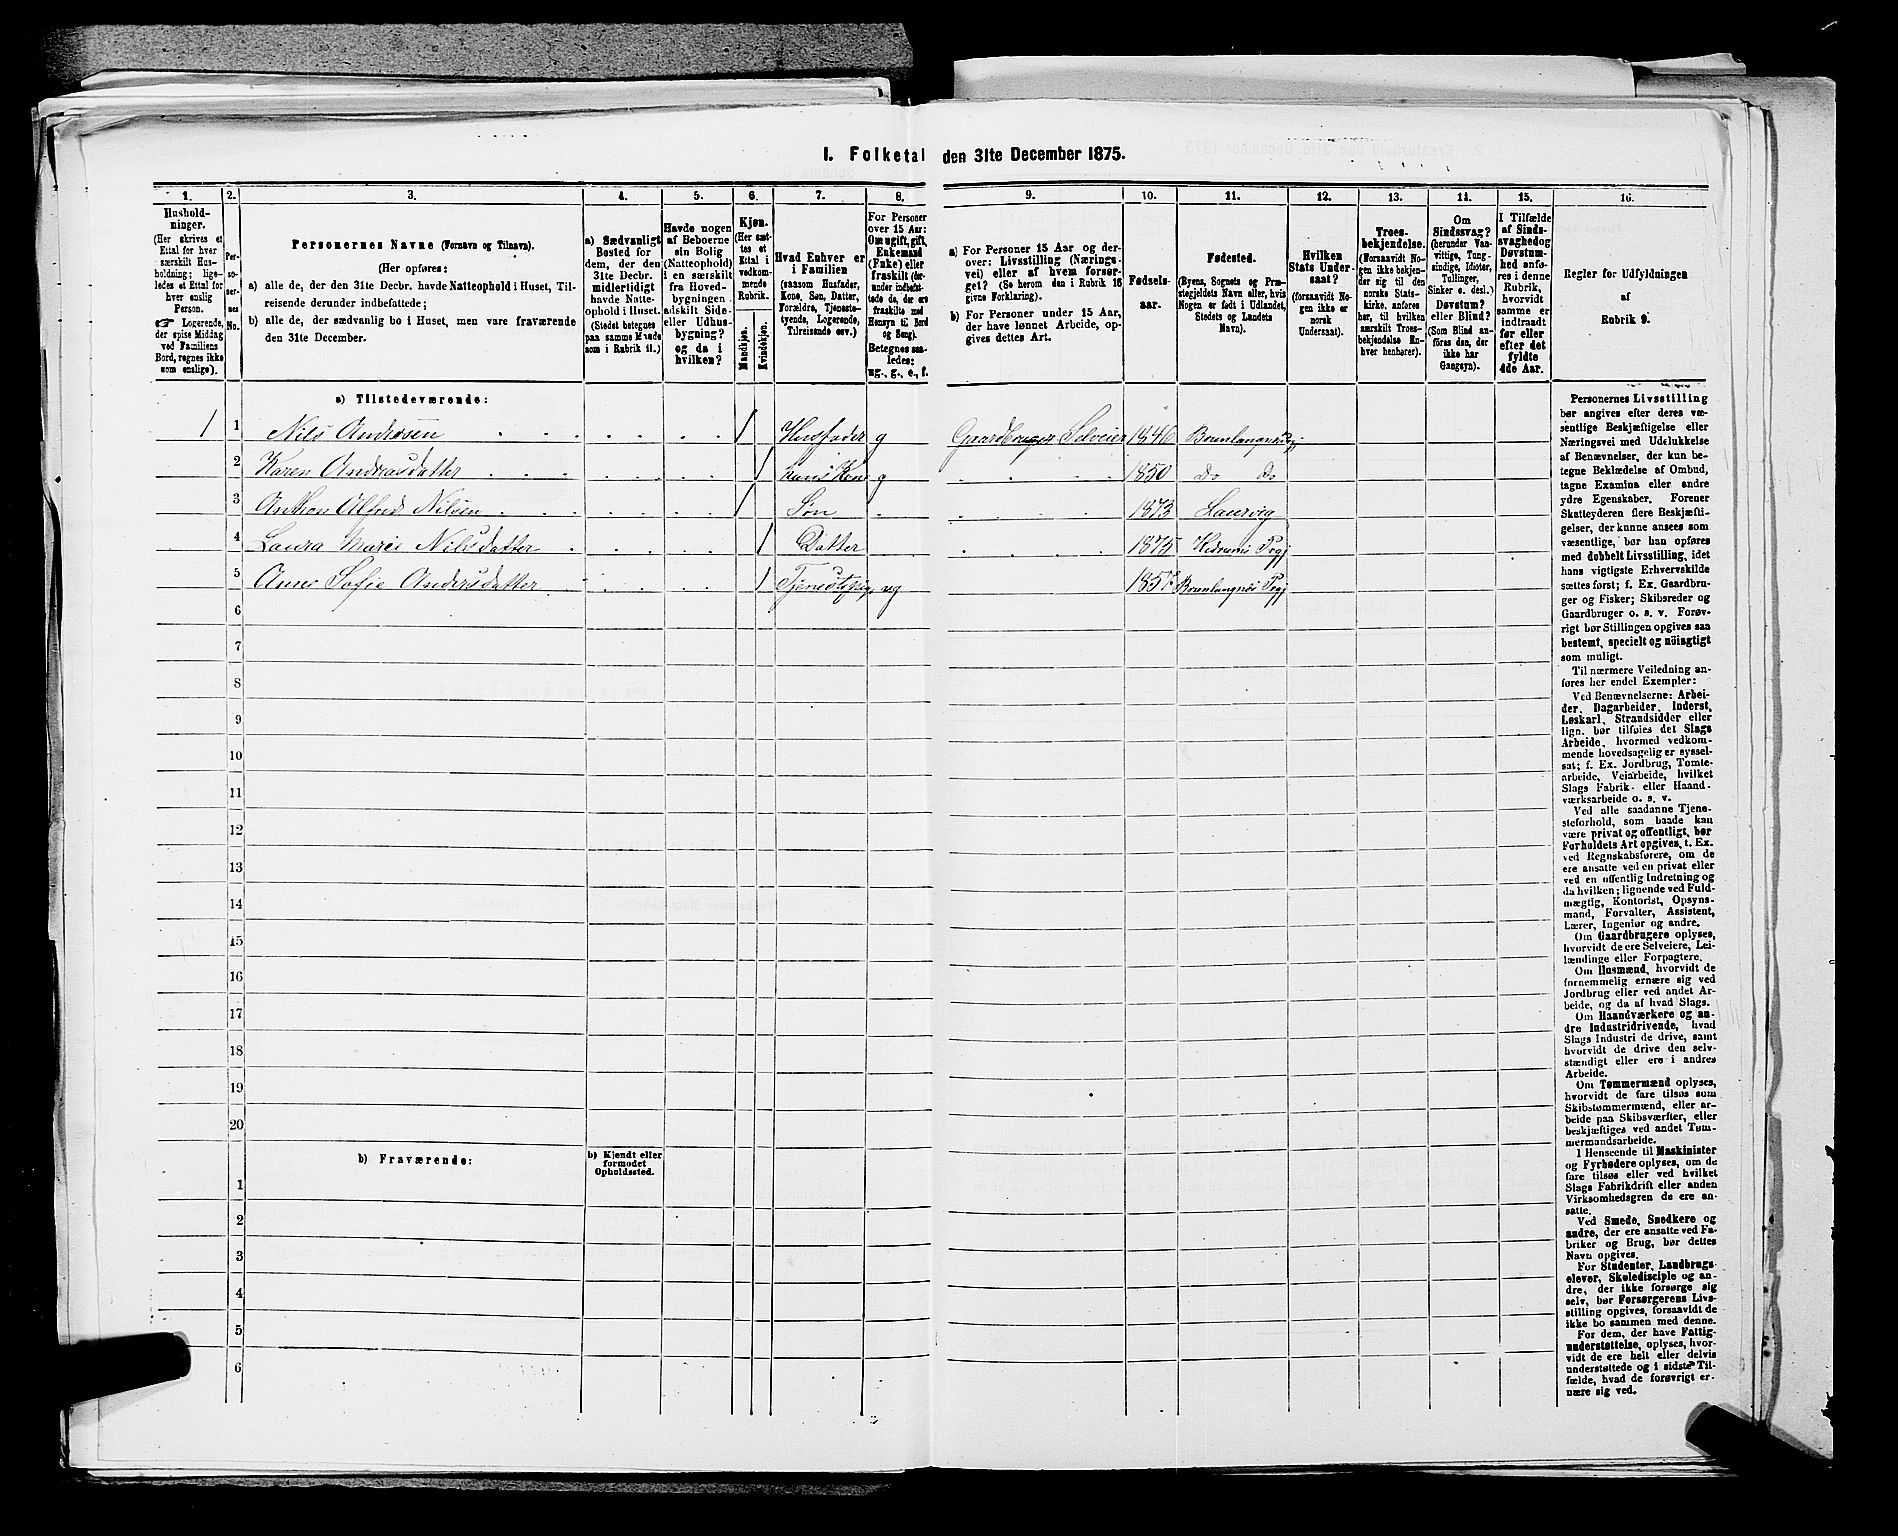 I. Folketal den 31te December 1875.
1.
Husholdninger.
(Her skrives et
Ettal for hver
særskilt Husholdning; ligeledes
et Ettal for
hver enslig
Person.
Logerende,
der spise Middag
ved Familiens
Bord, regnes ikke
som enslige).
2.
Personernes
No.
3.
Personernes Navne (Fornavn og Tilnavn).
(Her opføres:
a) alle de, der den 31te Decbr. havde Natteophold i Huset, Tilreisende
derunder indbefattede;
b) alle de, der sædvanlig bo i Huset, men vare fraværende
den 31te December.
4.
a) Sædvanligt
Bosted for
dem, der den
31te Decbr.
midlertidigt
havde Natteophold
i Huset.
(Stedet betegnes
paa samme Maade
som i Rubrik 11.)
5.
Havde nogen
af Beboerne
sin Bolig
(Natteophold)
i en særskilt
fra Hovedbygningen
adskilt Side-
eller Udhusbygning?
og da i
hvilken?
6.
Kjøn.
(Her sættes
et
Ettal i
vedkommende
Rubrik.
Mandkjøn.
Kvindekjøn.
7.
Hvad Enhver er
i Familien
(saasom Husfader,
Kone, Søn, Datter,
Forældre, Tjenestetyende,
Logerende,
Tilreisende osv.)
8.
For Personer
over 15 Aar:
Om ugift, gift,
Enkemand
(Enke) eller
fraskilt (herunder
indbefattede
de, der ere
fraskilte med
Hensyn til Bord
og Seng).
Betegnes saaledes:
ug., g., e., f.
9.
a) For Personer 15 Aar og derover:
Livsstilling (Næringsvei)
eller af hvem forsørget?
(Se herom den i Rubrik 16
givne Forklaring).
b) For Personer under 15 Aar,
der have lønnet Arbeide, opgives
dettes Art.
10.
Fødselsaar.
11.
Fødested.
(Byens, Sognets og Præstegjeldets
Navn eller, hvis
Nogen er født i Udlandet,
Stedets og Landets
Navn).
12.
Hvilken
Stats Undersaat?
(forsaavidt Nogen
ikke er
norsk
Undersaat).
13.
Troesbekjendelse.
(Forsaavidt Nogen
ikke bekjender
sig til den
norske Statskirke,
anføres
her, til hvilken
særskilt Troesbekjendelse
Enhver
henhører).
14.
Om
Sindssvag?
(herunder Vanvittige,
Tungsindige,
Idioter,
Tullinger,
Sinker o. desl.)
Døvstum?
eller Blind?
(Som Blind anføres
den, der
ikke har
Gangsyn).
15.
I Tilfælde
af Sindssvaghed
og
Døvstumhed
anføres
i denne
Rubrik,
hvorvidt
samme er
indtraadt
før eller
efter det
fyldte
4de Aar.
16.
Regler for Udfyldningen
af
Rubrik 9.
a) Tilstedeværende:
1 1 Nils Andresen 1 Husfader g Gaardbruger Selveier 1846
2 Karen Andreasdatter 1 hans Kone g 1850 Do Do
3 Anthon Alfred Nilsen 1 Søn 1873 Laurvig
4 Laura Marie Nilsdatter 1 Datter 1875 Hedrums Prgj
5 Anne Sofie Andersdatter 1 Tjenestepige ug Brunlangnæs Prgj
6
7
8
9
10
11
12
13
14
15
16
17
18
19
20
b) Fraværende:
b) Kjendt eller
formodet
Opholdssted.
1
2
3
4
5
6
Personernes Livsstilling
bør angives efter deres væsentlige
Beskjæftigelse eller
Næringsvei med Udelukkelse
af Benævnelser, der kun betegne
Beklædelse af Ombud,
tagne Examina eller andre
ydre Egenskaber. Forener
Skatteyderen flere Beskjæftigelser,
der kunne ansees som
væsentlige, bør han opføres
med dobbelt Livsstilling, idet
hans vigtigste Erhvervskilde
sættes først; f. Ex. Gaardbruger
og Fisker; Skibsreder og
Gaardbruger o. s. v. Forøvrigt
bør Stillingen opgives saa
bestemt, specielt og nöiagtigt
som muligt.
Til nærmere Veiledning anføres
her endel Exempler:
Ved Benævnelserne: Arbeider,
Dagarbeider, Inderst,
Løskarl, Strandsidder eller
lign. bør tilføies det Slags
Arbeide, hvormed vedkommende
hovedsagelig er sysselsat;
f. Ex. Jordbrug, Tomtearbeide,
Veiarbeide, hvilket
Slags Fabrik- eller Haandværksarbeide
o. s. v.
Ved alle saadanne Tjenesteforhold,
som baade kan
være privat og offentligt, bør
Forholdets Art opgives, t. Ex.
ved Regnskabsførere, om de
ere ansatte ved en privat eller
ved en offentlig Indretning og
da hvilken; lignende ved Fuldmægtig,
Kontorist, Opsynsmand,
Forvalter, Assistent,
Lærer, Ingeniør og andre.
Om Gaardbrugere oplyses,
hvorvidt de ere Selveiere, Leilændinge
eller Forpagtere.
Om Husmænd, hvorvidt de
fornemmelig ernære sig ved
Jordbrug eller ved andet Arbeide,
og da af hvad Slags.
Om Haandværkere og andre
Industridrivende, hvad
Slags Industri de drive, samt
hvorvidt de drive den selvstændigt
eller ere i andres
Arbeide.
Om Tømmermænd oplyses,
hvorvidt de fare tilsøs som
Skibstømmermænd, eller arbeide
paa Skibsværfter, eller
beskjæftiges ved andet Tømmermandsarbeide.
I Henseende til Maskinister
og Fyrbødere oplyses, om de
fare tilsøs eller ved hvilket
Slags Fabrikdrift eller anden
Virksomhedsgren de ere ansatte.
Ved Smede, Snedkere og
andre, der ere ansatte ved Fabriker
og Brug, bør dettes
Navn opgives.
For Studenter, Landbrugselever,
Skoledisciple og andre,
der ikke forsørge sig
selv, bør Forsørgerens Livsstilling
opgives, forsaavidt de
ikke bo sammen med denne.
For dem, der have Fattigunderstøttelse,
oplyses, hvorvidt
de ere helt eller delvis
understøttede og i sidste Tilfælde,
hvad de forøvrigt ernære
sig ved.